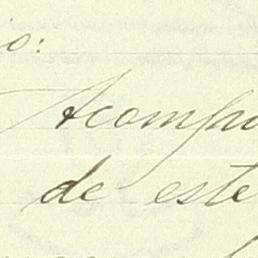 io:
Acompa
de este